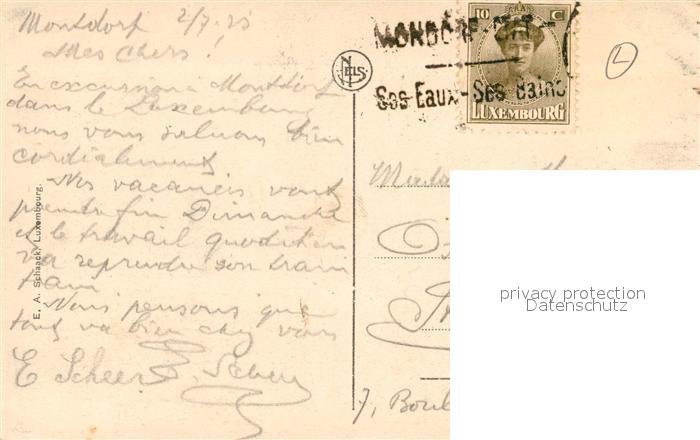 Montdorf 2/7.25
Mes chers !
En excursion a Montdorf
dans le Luxembourg
nous vous saluons bien
cordialement
Nos vacances vont
prendre fin Dimanche
et le travail quotidien
va reprendre son train
train
Nous pensons que
tout va bien chez vous
E Scheer
E. A. Schaack, Luxembourg.
NELS
MONDORF-ETAT
Ses Eaux-Ses Bains
10 C
LUXEMBOURG
L
7, Boul
privacy protection
Datenschutz